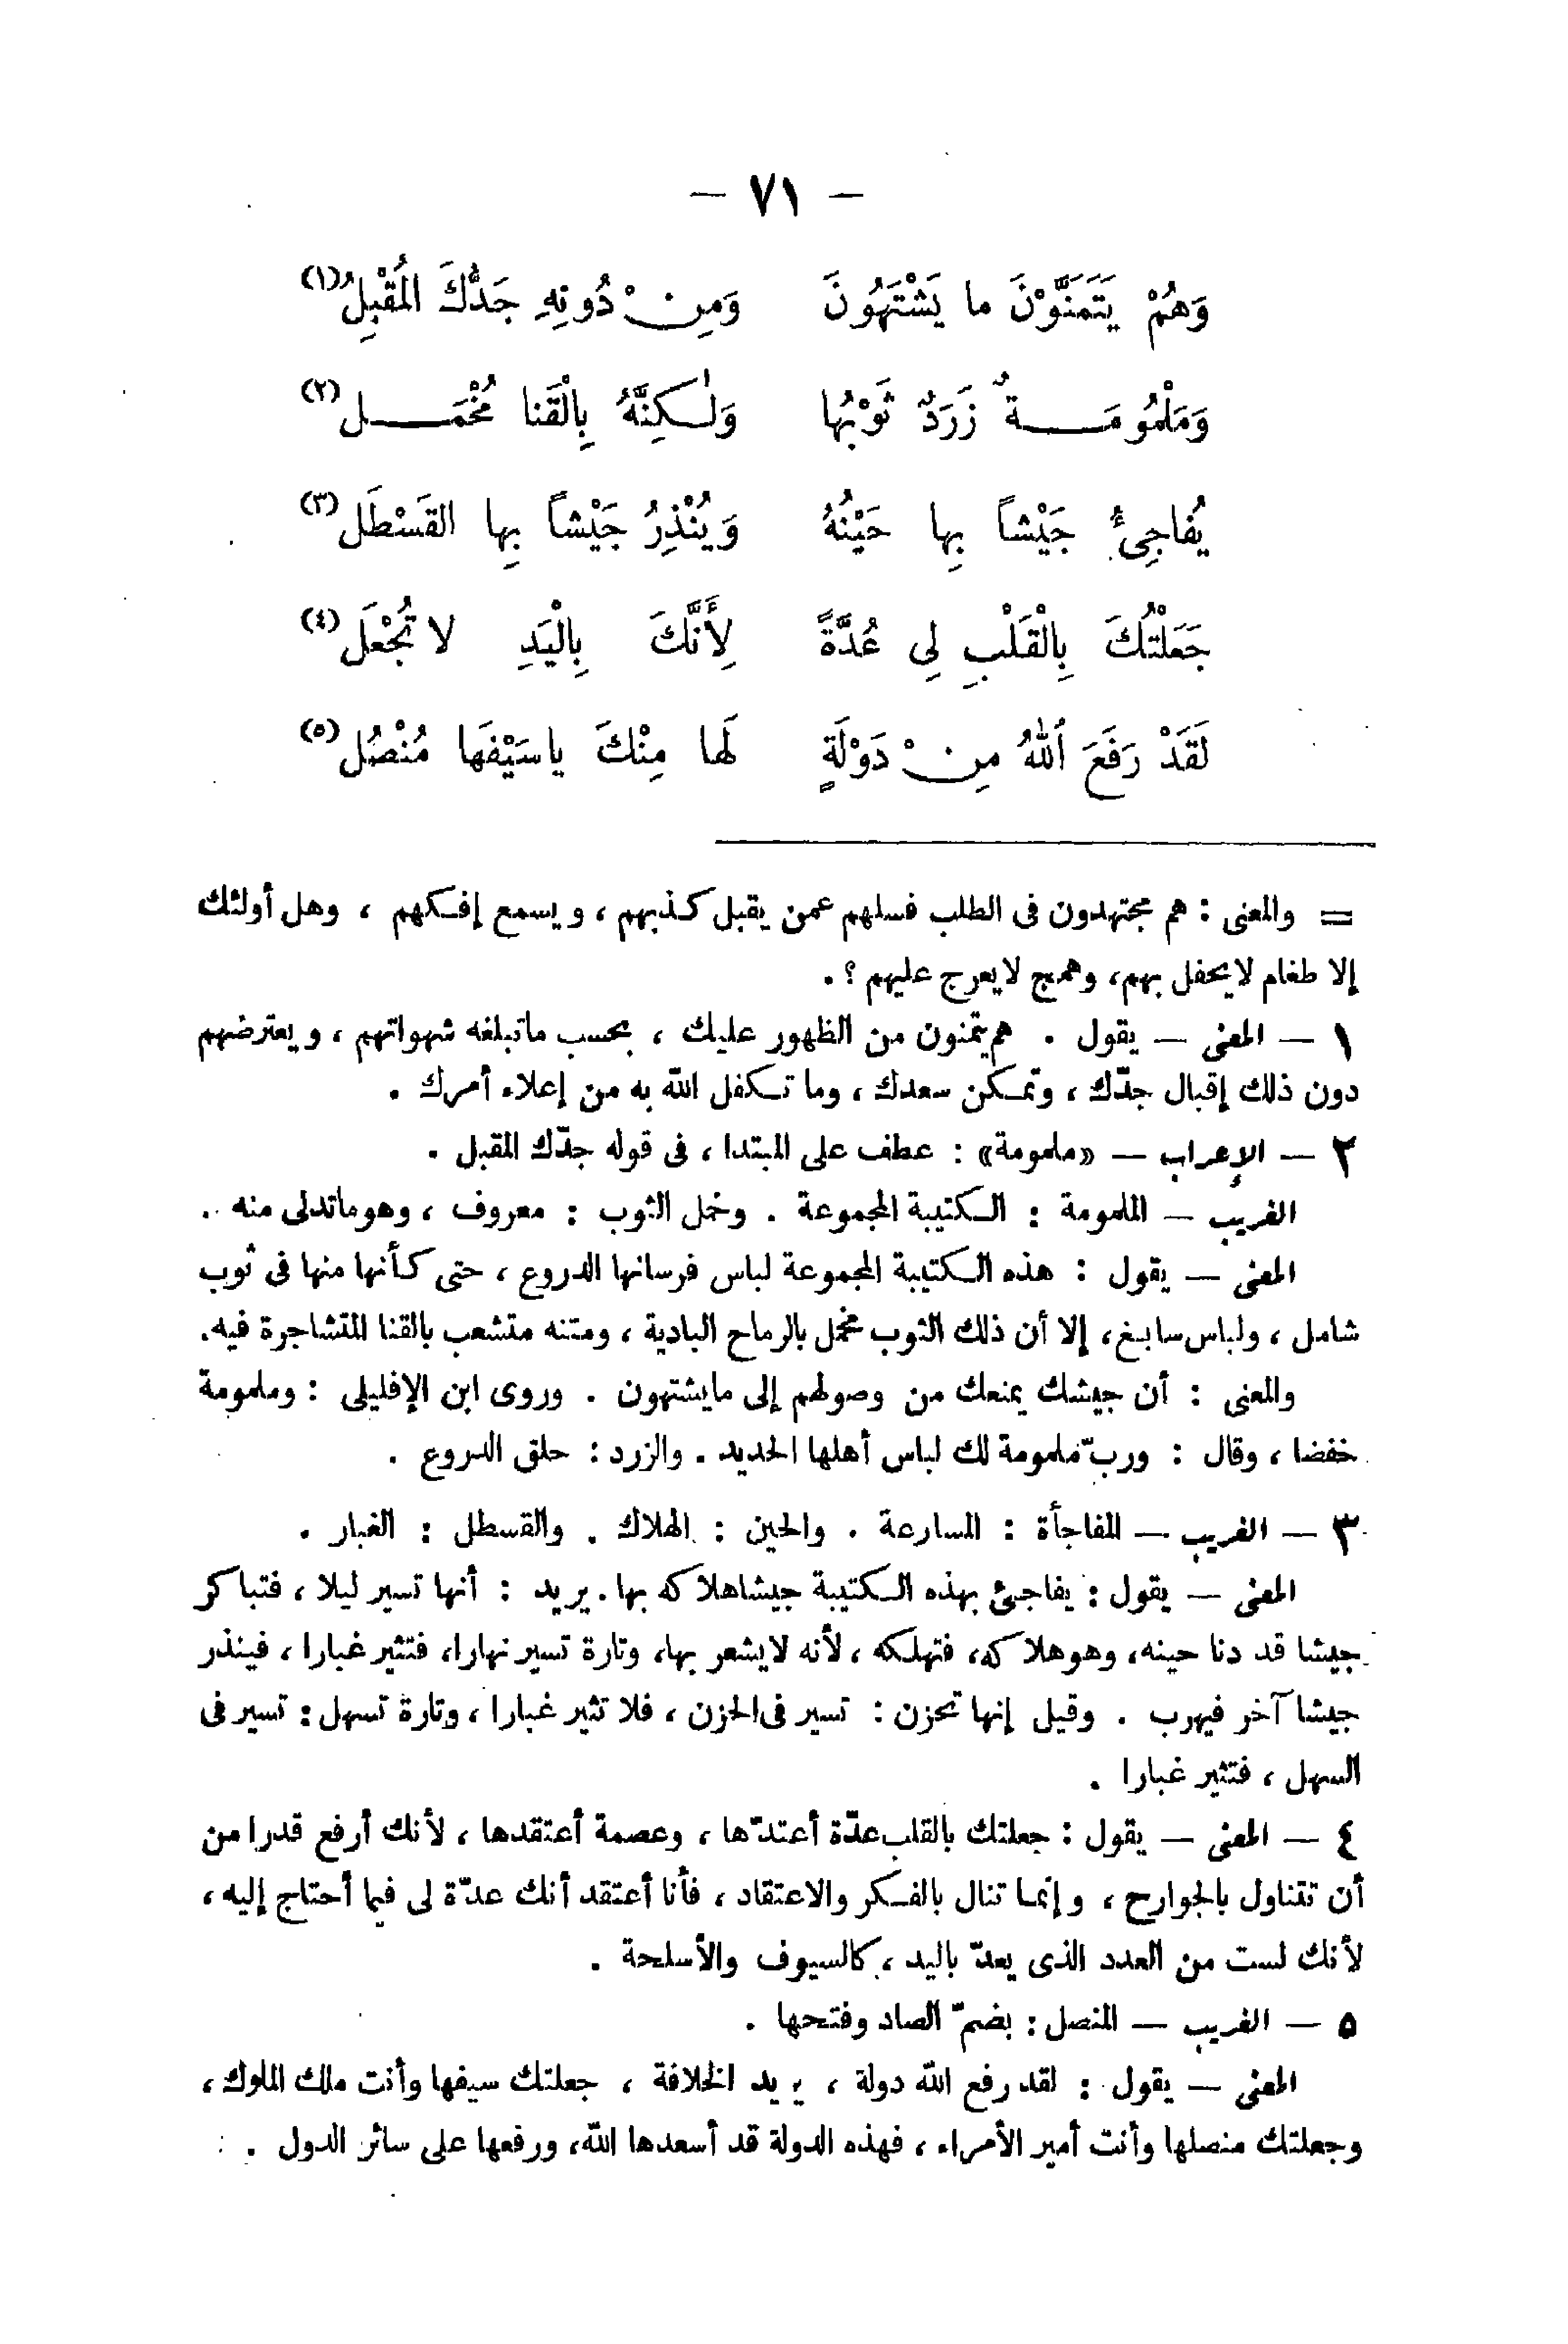 — ٧١ —
وَهُمْ يَتَمَنَّوْنَ ما يَشْتَهُونَ وَمِنْ دُونِهِ جَدُّكَ الْمُقْبِلُ (١)
وَمَلْمُومَةٌ زَرَدٌ ثَوْبُها وَلٰكِنَّهُ بِالْقَنا مُخْمَل (٢)
يُفاجِئُ جَيْشاً بِها حَيْنُهُ وَيُنْذِرُ جَيْشاً بِها القَسْطَل (٣)
جَعَلْتُكَ بِالْقَلْبِ لِي عُدَّةً لِأَنَّكَ بِالْيَدِ لا تُجْعَل (٤)
لَقَدْ رَفَعَ اللهُ مِنْ دَوْلَةٍ لَها مِنْكَ ياسَيْفَها مُنْصُل (٥)
= والمعنى : هم مجتهدون فى الطلب فسلهم عمن يقبل كذبهم ، ويسمع إفكهم ، وهل أولئك
إلا طغام لا يحفل بهم، وهمج لا يعرج عليهم ؟ .
١ — المعنى — يقول . هم يتمنون من الظهور عليك ، بحسب ماتبلغه شهواتهم ، ويعترضهم
دون ذلك إقبال جدّك ، وتمكن سعدك ، وما تكفل الله به من إعلاء أمرك .
٢ — الإعراب — «ملمومة» : عطف على المبتدا ، فى قوله جدّك المقبل .
الغريب — الملمومة : الكتيبة المجموعة . وخمل الثوب : معروف ، وهو ماتدلى منه .
المعنى — يقول : هذه الكتيبة المجموعة لباس فرسانها الدروع ، حتى كأنها منها فى ثوب
شامل ، ولباس سابغ ، إلا أن ذلك الثوب مخمل بالرماح البادية ، ومتنه متشعب بالقنا المتشاجرة فيه.
والمعنى : أن جيشك يمنعك من وصولهم إلى مايشتهون . وروى ابن الإفليلى : وملمومة
خفضا ، وقال : وربّ ملمومة لك لباس أهلها الحديد . والزرد : حلق الدروع .
٣ — الغريب — المفاجأة : المسارعة . والحين : الهلاك . والقسطل : الغبار .
المعنى — يقول : يفاجئ بهذه الكتيبة جيشا هلاكه بها . يريد : أنها تسير ليلا ، فتباكر
جيشا قد دنا حينه ، وهو هلاكه، فتهلكه ، لأنه لايشعر بها، وتارة تسير نهارا، فتثير غبارا ، فينذر
جيشا آخر فيهرب . وقيل إنها تحزن : تسير فى الحزن ، فلا تثير غبارا ، وتارة تسهل : تسير فى
السهل ، فتثير غبارا .
٤ — المعنى — يقول : جعلتك بالقلب عدّة أعتدّها ، وعصمة أعتقدها ، لأنك أرفع قدرا من
أن تتناول بالجوارح ، وإنما تنال بالفكر والاعتقاد ، فأنا أعتقد أنك عدّة لى فيما أحتاج إليه ،
لأنك لست من العدد الذى يعدّ باليد ، كالسيوف والأسلحة .
٥ — الغريب — المنصل : بضمّ الصاد وفتحها .
المعنى — يقول : لقد رفع الله دولة ، يريد الخلافة ، جعلتك سيفها وأنت ملك الملوك ،
وجعلتك منصلها وأنت أمير الأمراء ، فهذه الدولة قد أسعدها الله، ورفعها على سائر الدول .